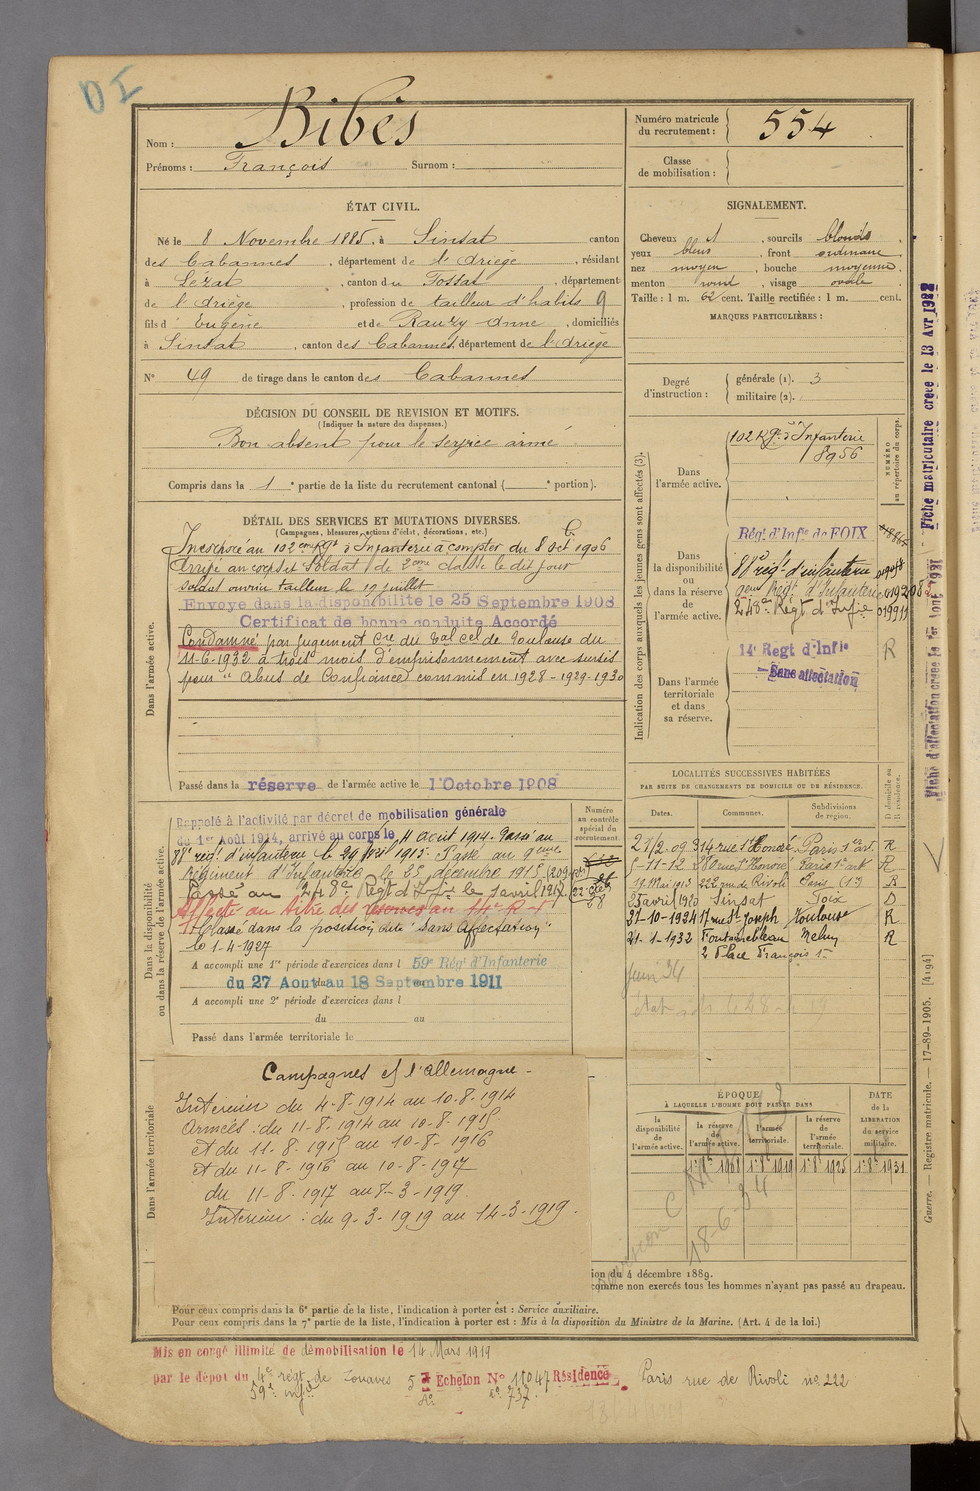 DI
Nom : Bibès
Prénoms : François Surnom :
Numéro matricule du recrutement : 554
Classe de mobilisation :
ÉTAT CIVIL.
Né le 8 Novembre 1885, à Sinsat canton
des Cabannes, département de l'Ariège, résidant
à Lézat, canton du Fossat, département
de l'Ariège, profession de tailleur d'habits 9
fils d' Eugène et de Rauzy Anne, domiciliés
à Sinsat, canton des Cabannes, département de l'Ariège
N° 49 de tirage dans le canton des Cabannes
SIGNALEMENT.
Cheveux et, sourcils blonds,
yeux bleus, front ordinaire
nez moyen, bouche moyenne,
menton rond, visage ovale
Taille : 1 m. 62 cent. Taille rectifiée : 1 m. cent.
MARQUES PARTICULIÈRES :
Degré d'instruction : générale (1). 3
militaire (2).
DÉCISION DU CONSEIL DE REVISION ET MOTIFS.
(Indiquer la nature des dispenses.)
Bon absent pour le service armé
Compris dans la 1e partie de la liste du recrutement cantonal ( e portion).
DÉTAIL DES SERVICES ET MUTATIONS DIVERSES.
(Campagnes, blessures, actions d'éclat, décorations, etc.)
Dans l'armée active.
Incorporé au 102eme Rgt d'Infanterie à compter du 8 oct 1906
Arrivé au corps et Soldat de 2eme classe le dit jour
soldat ouvrier tailleur le 19 juillet
Envoyé dans la disponibilité le 25 Septembre 1908
Certificat de bonne conduite Accordé
Condamné par jugement Cre du Tal Cel de Toulouse du
11-6-1932 à trois mois d'emprisonnement avec sursis
pour "Abus de Confiance commis en 1928-1929-1930
Passé dans la réserve de l'armée active le 1 Octobre 1908
Indication des corps auxquels les jeunes gens sont affectés (3).
NUMÉRO au répertoire du corps.
Dans l'armée active.
102 Rgt d'Infanterie
8956
Dans la disponibilité ou dans la réserve de l'armée active.
Régt d'Infie de FOIX
88e régt d'infanterie
9eme Régt d'Infanterie
248e Régt d'Infie 019911
R
Dans l'armée territoriale et dans sa réserve.
14e Regt d'Infie
Sans affectation
Fiche matriculaire créée le 13 Avr 1922
Fiche d'affectation créée le 1er Aout 1921
Dans la disponibilité ou dans la réserve de l'armée active.
Rappelé à l'activité par décret de mobilisation générale
du 1er Août 1914, arrivé au corps le 11 aout 1914. Passé au
88e régt d'infanterie le 29 avril 1915. Passé au 9eme
Régiment d'Infanterie le 25 décembre 1915
Passé au 248e Régt d'Infie le 1 avril 1917
Affecté au titre des réserves au 14e R.I
Classé dans la position dite "Sans Affectation"
le 1-4-1927
A accompli une 1re période d'exercices dans l 59e Régt d'Infanterie
du 27 Aout au 18 Septembre 1911
A accompli une 2e période d'exercices dans l
du au
Passé dans l'armée territoriale le
Numéro au contrôle spécial du recrutement.
LOCALITÉS SUCCESSIVES HABITÉES
PAR SUITE DE CHANGEMENTS DE DOMICILE OU DE RÉSIDENCE.
Dates. Communes. Subdivisions de région. D domicile ou R résidence.
314 rue St Honoré Paris 1er art. R
5-11-12 280 rue St Honoré Paris 1er art R
19 Mai 1913 222 rue de Rivoli Paris (1er) R
25 avril 1920 Sinsat Foix D
21-10-1924 17 rue St Joseph Toulouse R
21-1-1932 Fontainebleau Melun R
2 Place François 1er
juin 34
Dans l'armée territoriale
Campagnes c/ l'allemagne -
Intérieur du 4-8-1914 au 10-8-1914
Armées : du 11-8-1914 au 10-8-1915
et du 11-8-1915 au 10-8-1916
et du 11-8-1916 au 10-8-1917
du 11-8-1917 au 8-3-1919
Intérieur : du 9-3-1919 au 14-3-1919.
ÉPOQUE
À LAQUELLE L'HOMME DOIT PASSER DANS
la disponibilité de l'armée active. la réserve de l'armée active. l'armée territoriale. la réserve de l'armée territoriale. DATE de la LIBÉRATION du service militaire.
1er 8bre 1908 1er 8bre 1919 1er 8bre 1925 1er 8bre 1931
18-6-34
ion du 4 décembre 1889.
comme non exercés tous les hommes n'ayant pas passé au drapeau.
Pour ceux compris dans la 6e partie de la liste, l'indication à porter est : Service auxiliaire.
Pour ceux compris dans la 7e partie de la liste, l'indication à porter est : Mis à la disposition du Ministre de la Marine. (Art. 4 de la loi.)
Guerre. — Registre matricule. — 17-89-1905. [4194]
Mis en congé illimité de démobilisation le 14 Mars 1919
par le dépot du 4e régt de Zouaves 5e Echelon N° 11047 Résidence Paris rue de Rivoli n° 222
59e infie n° 737